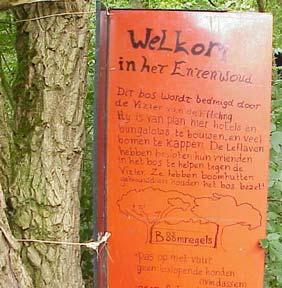 Welkom
in het Entenwoud
Dit bos wordt bedreigd door
de Vizier van de Efteling
Hij is van plan hier hotels en
bungalows te bouwen, en veel
bomen te kappen. De Leflaven
hebben besloten hun vrienden
in het bos te helpen tegen de
Vizier. Ze hebben boomhutten
gebouwd en houden het bos bezet!
Boomregels
-pas op met vuur
geen loslopende honden